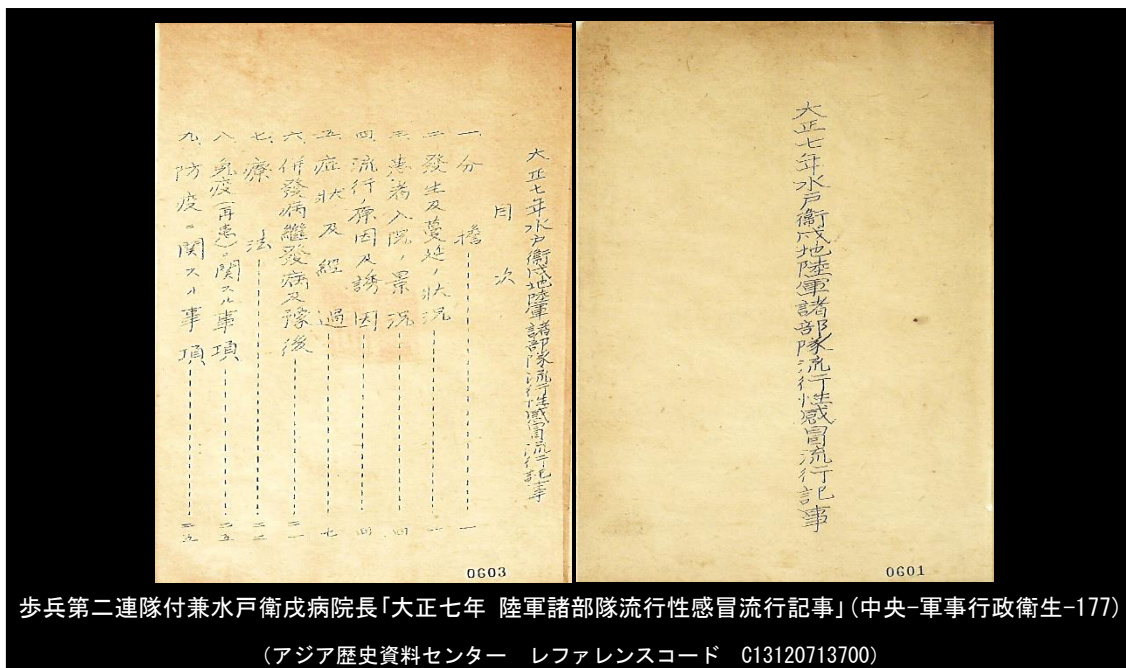 大正七年水戸衞戍地陸軍諸部隊流行性感冒流行記事
0601
大正七年水戸衞戍地陸軍諸部隊流行性感冒流行記事
目次
一、分擔 一
二、發生及蔓延ノ狀況 一
三、患者入院ノ景況 四
四、流行ノ原因及誘因 四
五、症狀及經過 七
六、併發病繼發病及豫後 二一
七、療法 二二
八、免疫(再患)ニ関スル事項 二五
九、防疫ニ関スル事項 二九
0603
歩兵第二連隊付兼水戸衛戌病院長「大正七年 陸軍諸部隊流行性感冒流行記事」(中央-軍事行政衛生-177)
(アジア歴史資料センター レファレンスコード C13120713700)